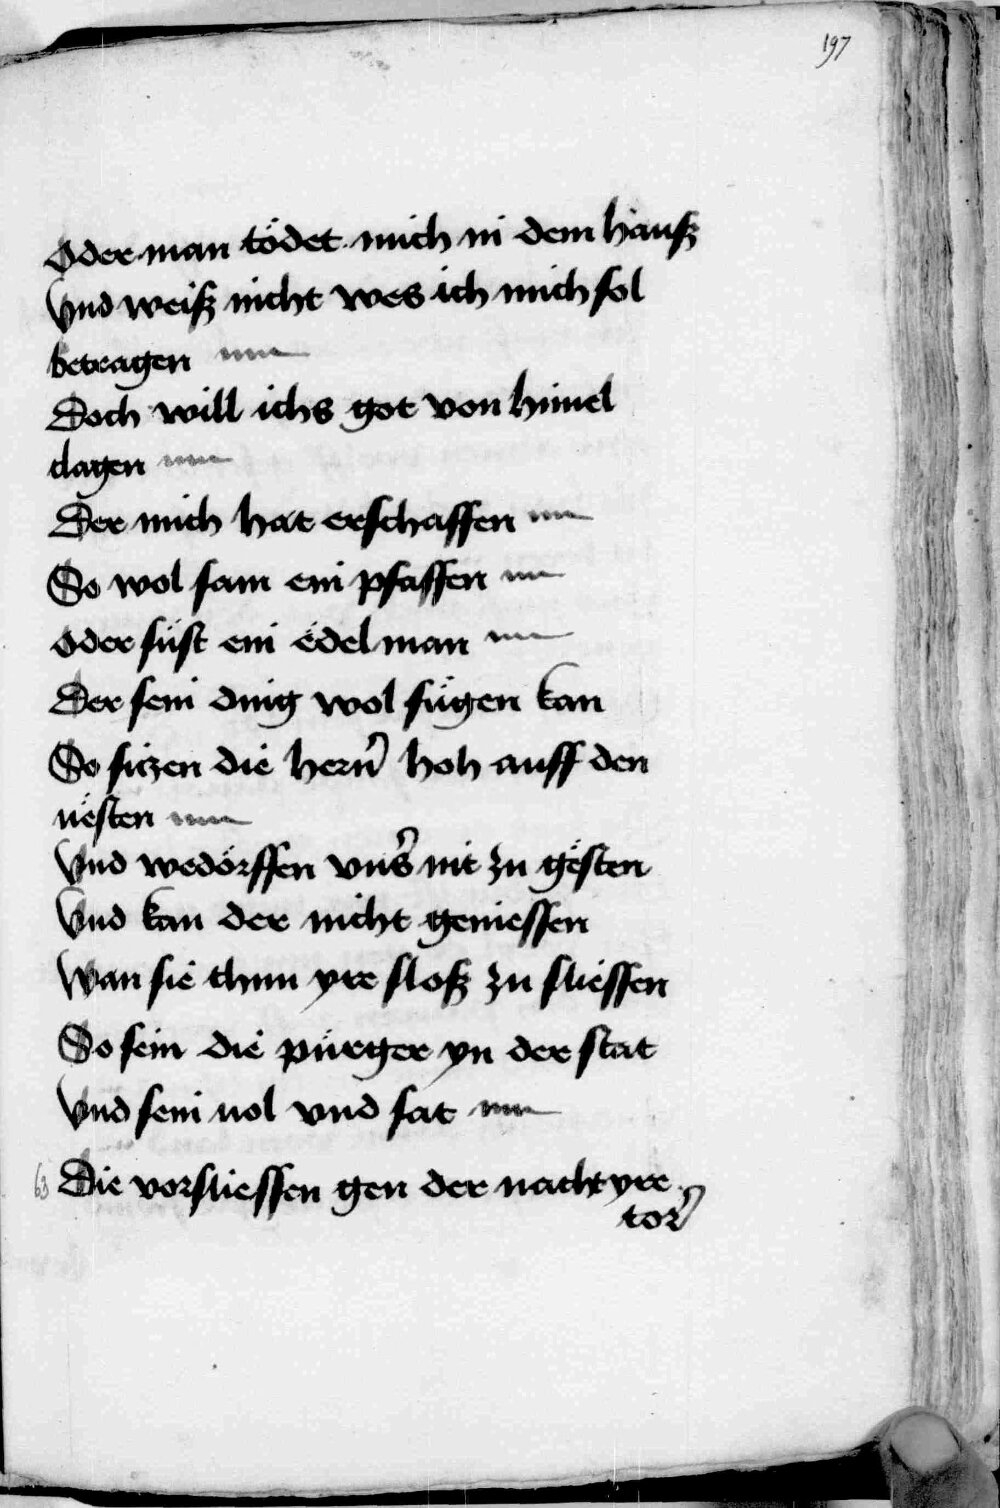 197
Oder man tödet mich in dem hauß
Vnd weiß nicht wes ich mich sol
betragen
Doch will ichs got von himel
clagen
Der mich hat erschaffen
So wol sam ein pfaffen
Oder süst ein edelman
Der sein ding wol fügen kan
So siczen die hern hoh auff den
vesten
Vnd wedörffen vns nit zu gesten
Vnd kan der nicht geniessen
Wan sie thun yre sloß zu sliessen
So sein die pürger yn der stat
Vnd sein vol vnd sat
63 Die vorsliessen gen der nacht yre
tor